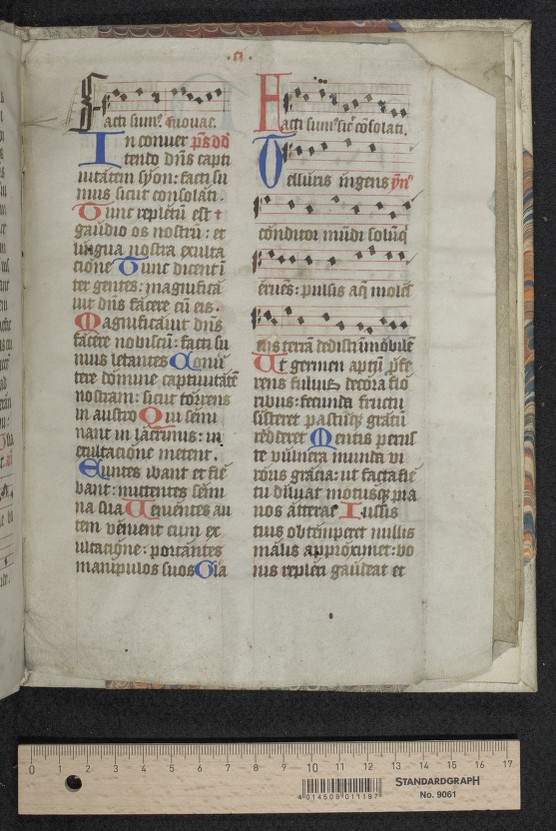 · cj ·
Facti sumꝰ. Euouae.
In conuer ps dd
tendo dn̄s capti
uitatem syon: facti su
mus sicut consolati.
Tunc repletū est
gaudio os nostrū: et
lingua nostra exulta
cione Tunc dicent ī
ter gentes: magnificā
uit dn̄s facere cū eis.
Magnificāuit dn̄s
facere nobiscū: facti su
mus letantes Conuer
tere domine captiuitatē
nostram: sicut torrens
in austro Qui semi
nant in lacrimis: in
exultacione metent.
Euntes ibant et fle
bant: mittentes semi
na sua Uenientes au
tem venient cum ex
ultacione: portantes
manipulos suos Gla
Facti sumꝰ sicꝰ cōsolati.
Telluris ingens ymꝰ
conditor mūdi solūq̄
eruēs: pulsis aq̄ molesti
eiis terrā dedisti īmobilē
Ut germen aptū pfe
rens fuluis decora flo
ribus: fecunda fructu
sisteret pastūq̄ gratū
redderet Mentis peruste
vulnera munda vi
roris gracia: ut facta fle
tu diluat motusq̄ pra
uos atterat Iussis
tuis obtemperet nullis
malis approximet: bo
nis repleri gaudeat et
0 1 2 3 4 5 6 7 8 9 10 11 12 13 14 15 16 17
4 014509 011197
STANDARDGRAPH
No. 9061